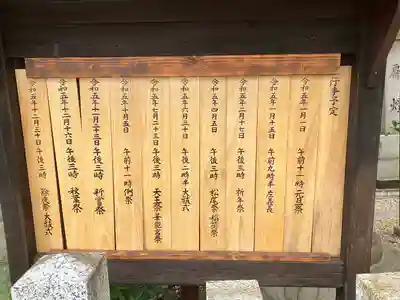 行事予定
令和五年一月一日 午前十一時 元旦祭
令和五年一月十五日 午前九時半 左義長
令和五年二月十七日 午後三時 祈年祭
令和五年四月五日 午後三時 松尾祭 稲荷祭
令和五年六月三十日 午後三時半 大祓式
令和五年七月二十三日 午後三時 天王祭
令和五年十月五日 午前十一時 例祭
令和五年十一月二十三日 午後三時 新嘗祭
令和五年十二月十六日 午後三時 秋葉祭
令和五年十二月三十日 午後三時 除夜祭 大祓式